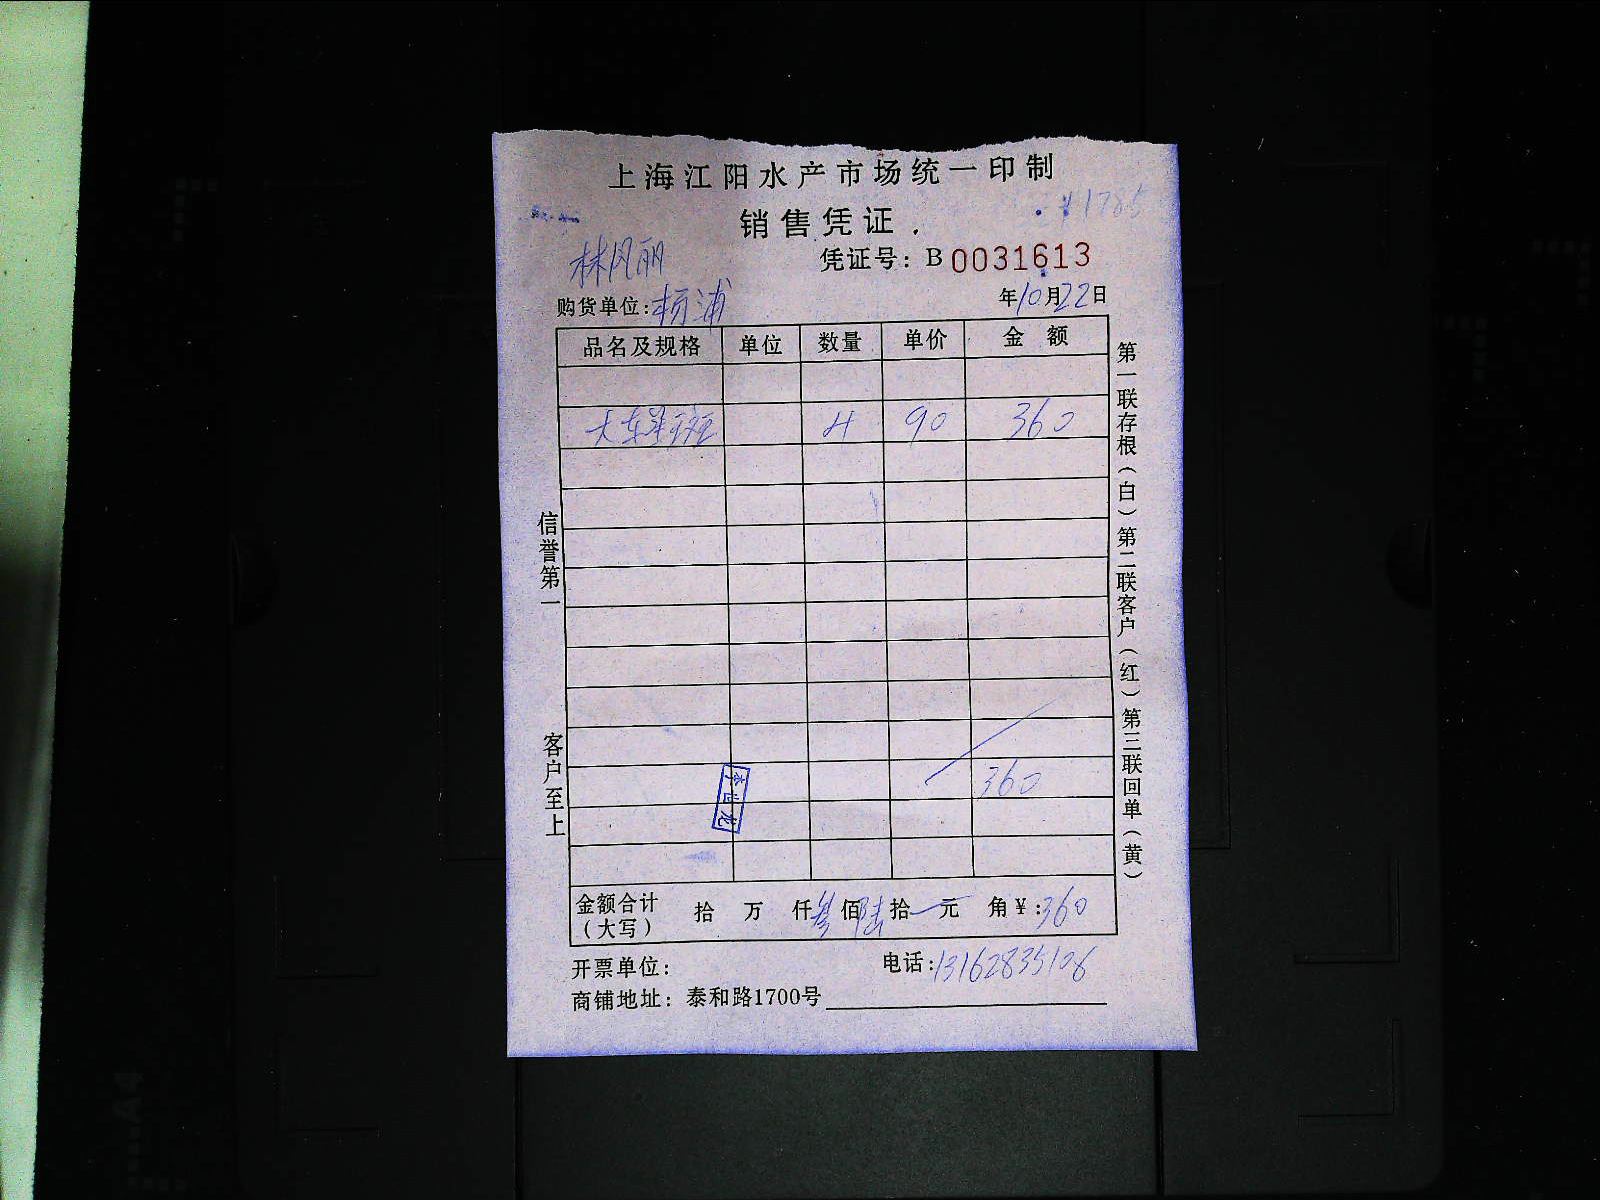 上海江阳水产市场统一印制
¥1785
销售凭证
林凤丽
凭证号：B 0031613
购货单位：杨浦
年10月22日
品名及规格 单位 数量 单价 金额
4 90 360
360
李世龙
金额合计（大写） 拾 万 仟 叁 佰 陆 拾 元 角 ¥：360
开票单位：
电话：13162835106
商铺地址：泰和路1700号
信誉第一
客户至上
第一联存根（白）第二联客户（红）第三联回单（黄）